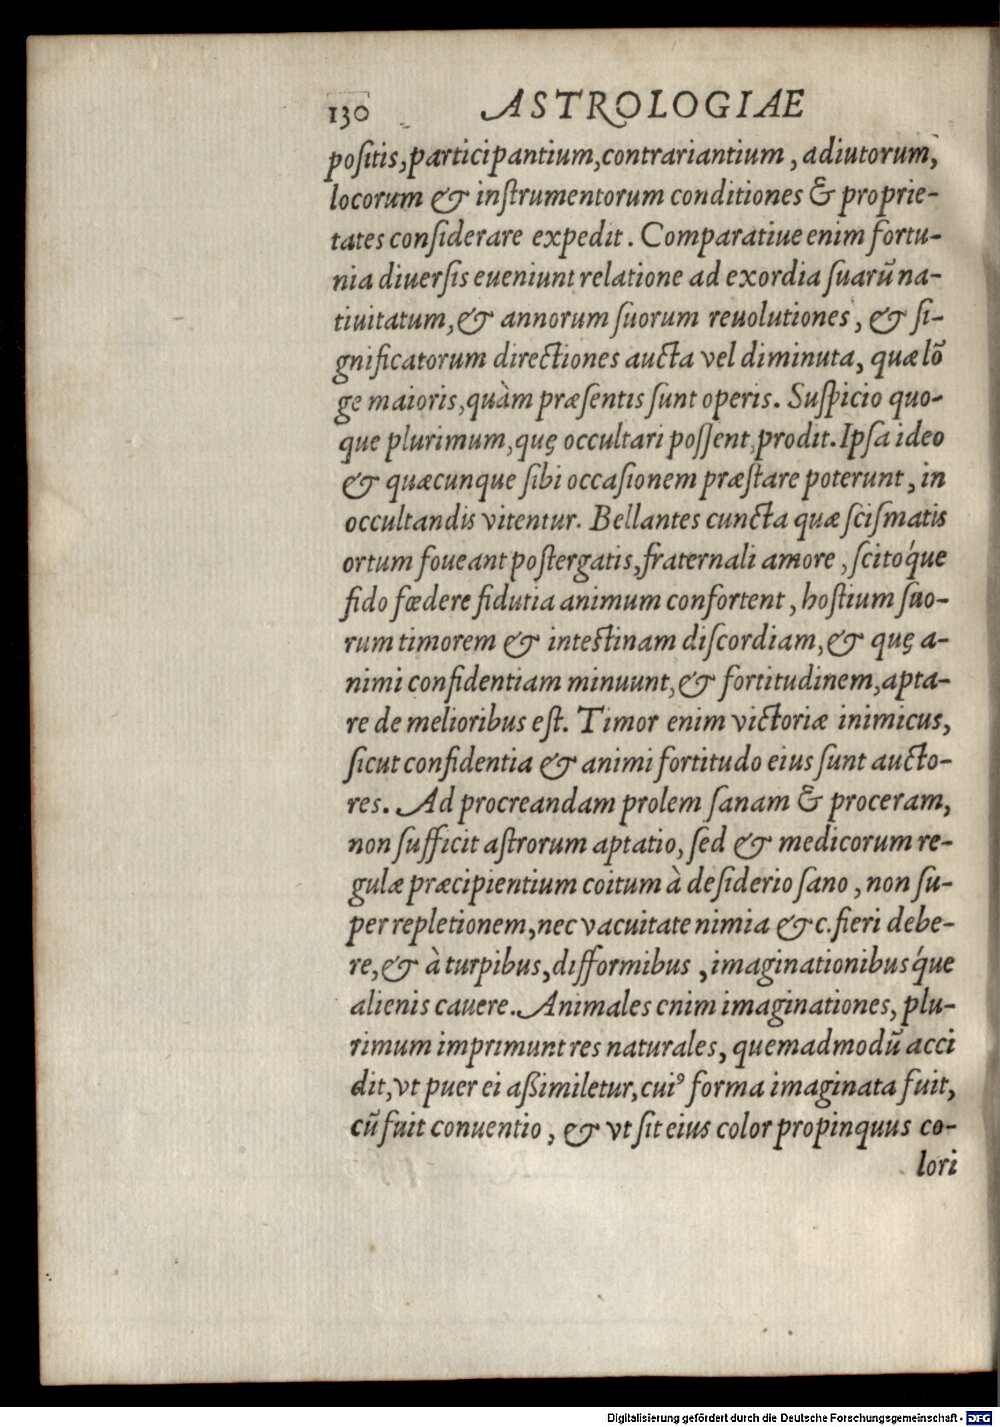 130 ASTROLOGIAE
poſitis, participantium, contrariantium, adiutorum,
locorum & inſtrumentorum conditiones & proprie-
tates conſiderare expedit. Comparatiue enim fortu-
nia diuerſis eueniunt relatione ad exordia ſuarū na-
tiuitatum, & annorum ſuorum reuolutiones, & ſi-
gnificatorum directiones aucta vel diminuta, quæ lō
ge maioris, quàm præſentis ſunt operis. Suſpicio quo-
que plurimum, quę occultari poſſent, prodit. Ipſa ideo
& quæcunque ſibi occaſionem præſtare poterunt, in
occultandis vitentur. Bellantes cuncta quæ ſciſmatis
ortum foueant poſtergatis, fraternali amore, ſcitóque
fido fœdere fidutia animum confortent, hoſtium ſuo-
rum timorem & inteſtinam diſcordiam, & quę a-
nimi confidentiam minuunt, & fortitudinem, apta-
re de melioribus eſt. Timor enim victoriæ inimicus,
ſicut confidentia & animi fortitudo eius ſunt aucto-
res. Ad procreandam prolem ſanam & proceram,
non ſufficit aſtrorum aptatio, ſed & medicorum re-
gulæ præcipientium coitum à deſiderio ſano, non ſu-
per repletionem, nec vacuitate nimia & c. fieri debe-
re, & à turpibus, difformibus, imaginationibusq́ue
alienis cauere. Animales enim imaginationes, plu-
rimum imprimunt res naturales, quemadmodū acci
dit, vt puer ei aßimiletur, cuiꝰ forma imaginata fuit,
cū fuit conuentio, & vt ſit eius color propinquus co-
lori
Digitalisierung gefördert durch die Deutsche Forschungsgemeinschaft - DFG